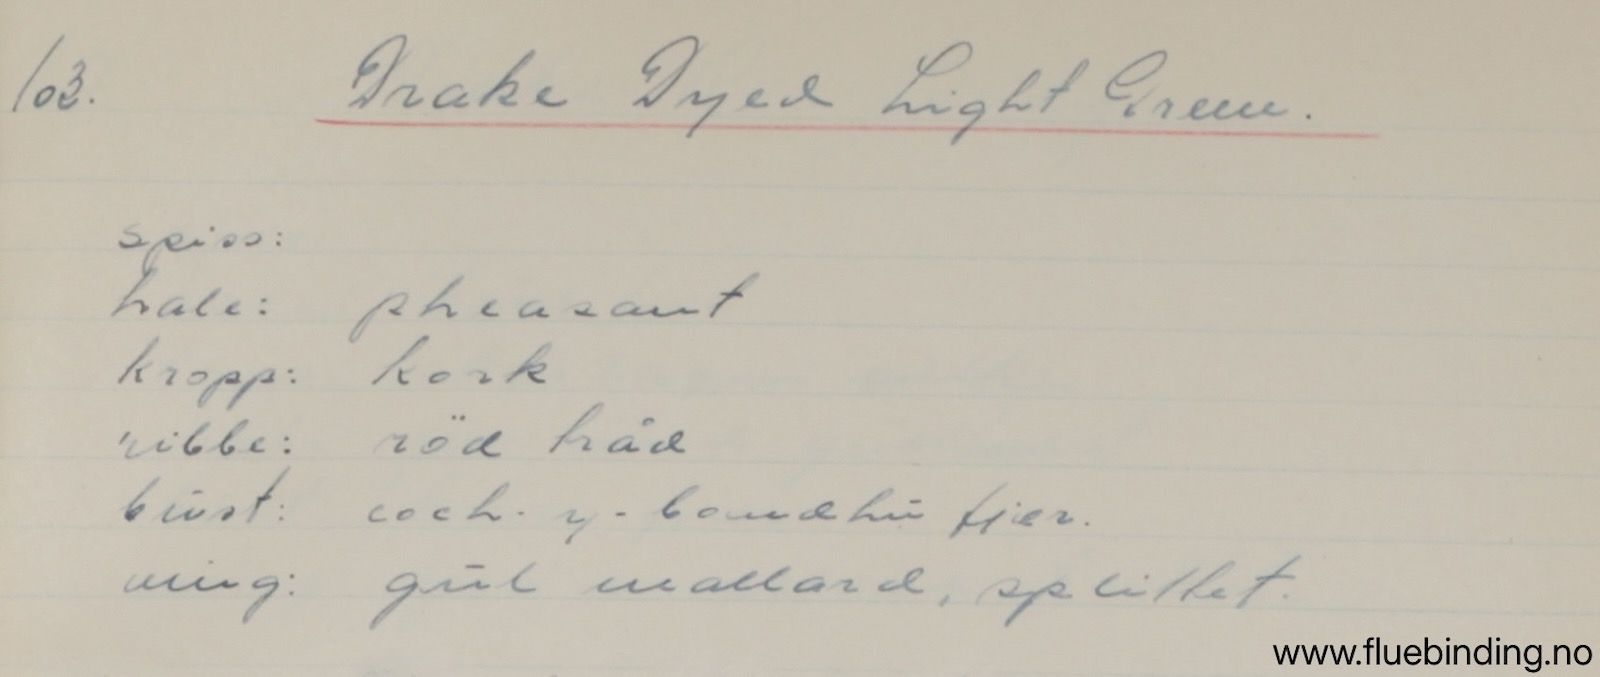 103. Drake Dyed Light Green.
spiss:
hale: pheasant
kropp: kork
ribbe: röd tråd
bust: coch-y-bondhu fjær.
ving: gul mallard, splittet.
www.fluebinding.no